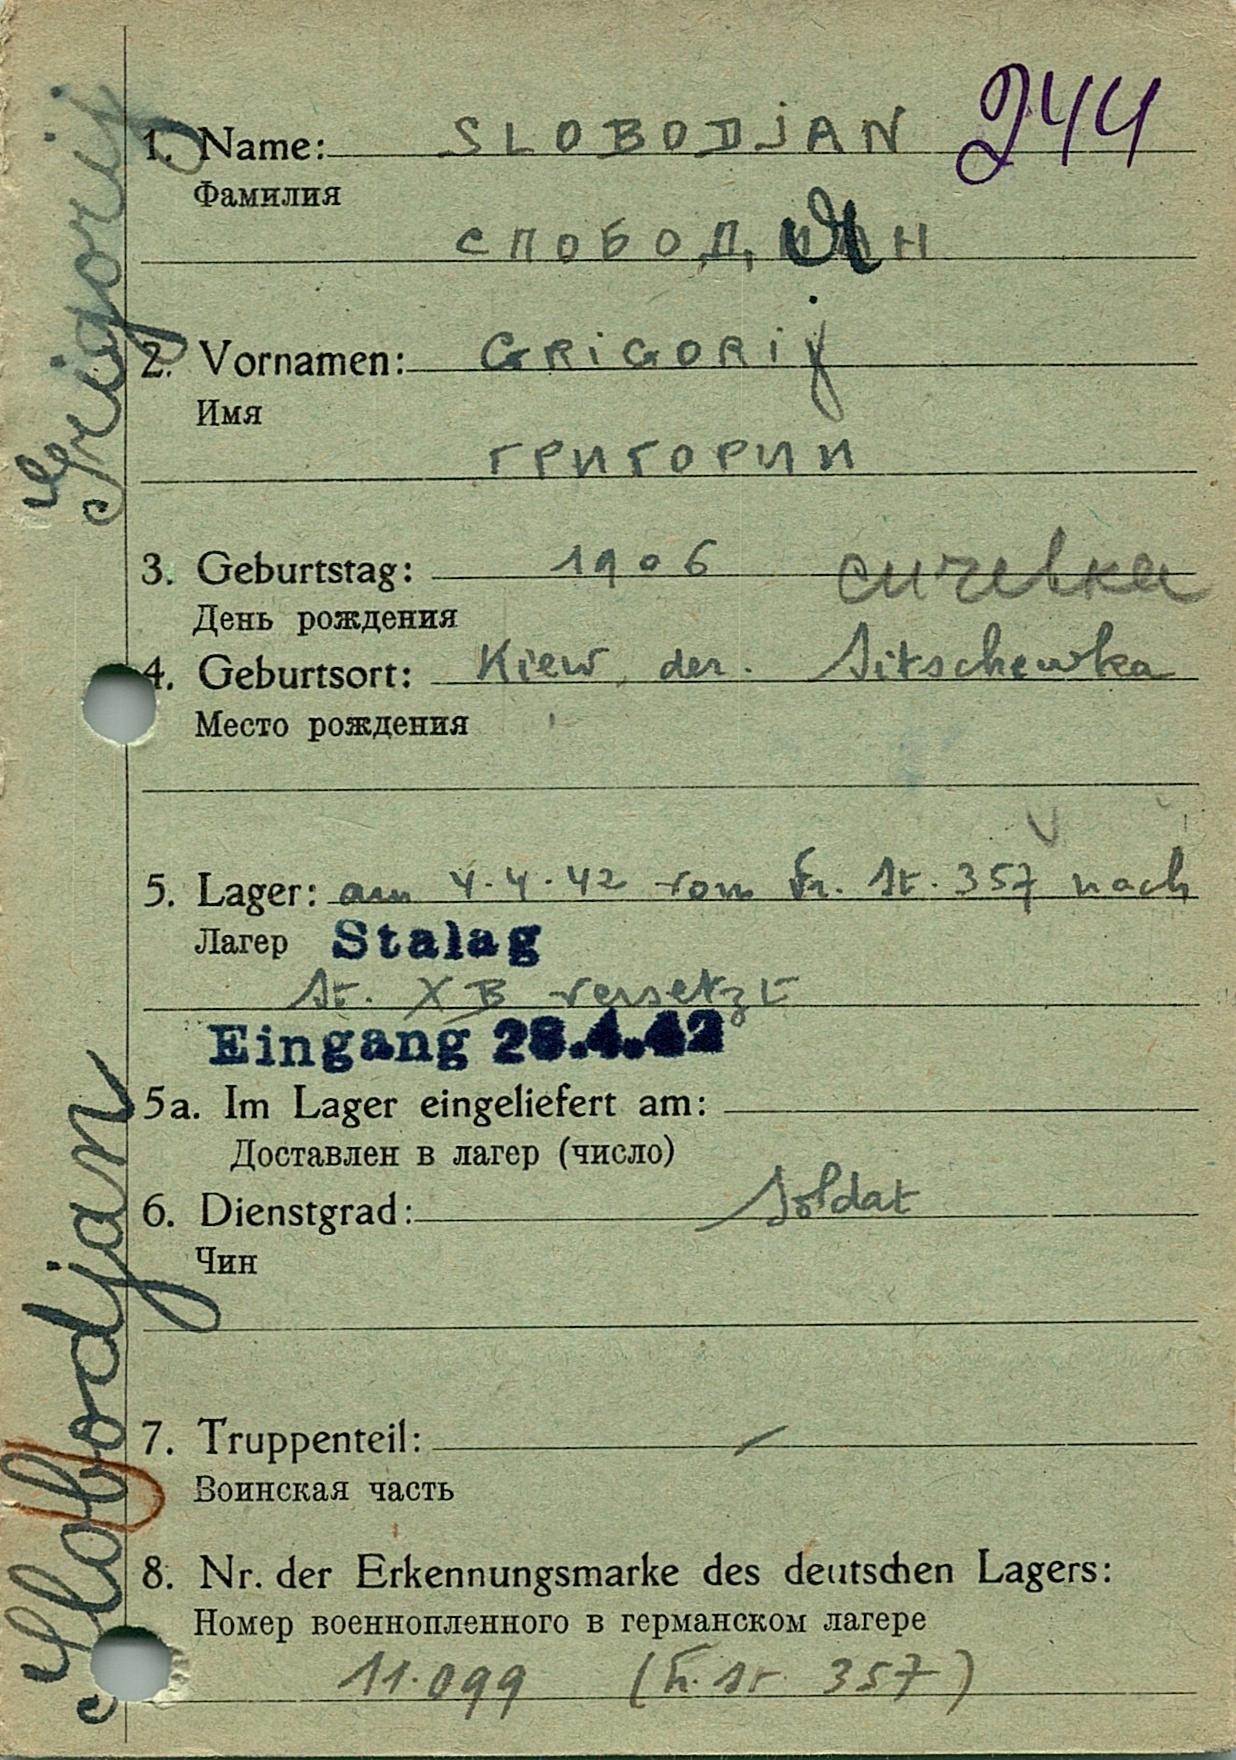 Slobodjan Grigorij
244
1. Name: SLOBODJAN
Фамилия
СЛОБОДЯН
2. Vornamen: GRiGORij
Имя
ГРИГОРИИ
3. Geburtstag: 1906 сичевка
День рождения
4. Geburtsort: Kiew, der. Sitschewka
Место рождения
5. Lager: am 4.4.42 vom Fr. St. 357 nach
Лагер Stalag
St. XB versetzt
Eingang 28.4.42
5a. Im Lager eingeliefert am:
Доставлен в лагер (число)
6. Dienstgrad: Soldat
Чин
7. Truppenteil: —
Воинская часть
8. Nr. der Erkennungsmarke des deutschen Lagers:
Номер военнопленного в германском лагере
11.099 (Fr. St. 357)